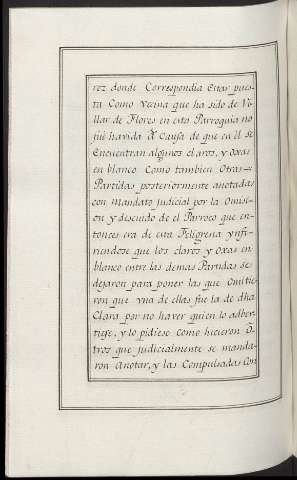 rez donde Correspondia Estar pues-
ta Como vecina que ha sido de Vi-
llar de Flores en esta Parroquia no
fue havida à Causa de que en el se
Encuentran algunos claros, y oxas
en blanco Como tambien Otras
Partidas posteriormente anotadas
con Mandato judicial por la Omisi-
on y descuido de el Parroco que en-
tonces era de esta Feligresia ynfi-
riendose que los claros y oxas en
blanco entre las demas Partidas se
dejaron para poner las que Omitie-
ron que vna de ellas fue la de dha
Clara por no haver quien lo adber-
tiese, y lo pidiese como hicieron O-
tros que judicialmente se manda-
ron Anotar, y las Compulsadas Con